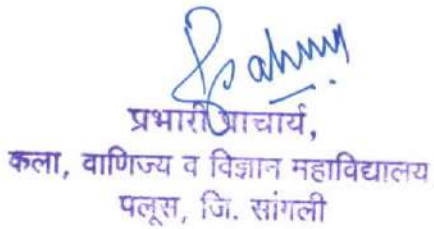 प्रभारी प्राचार्य,
कला, वाणिज्य व विज्ञान महाविद्यालय
पलूस, जि. सांगली